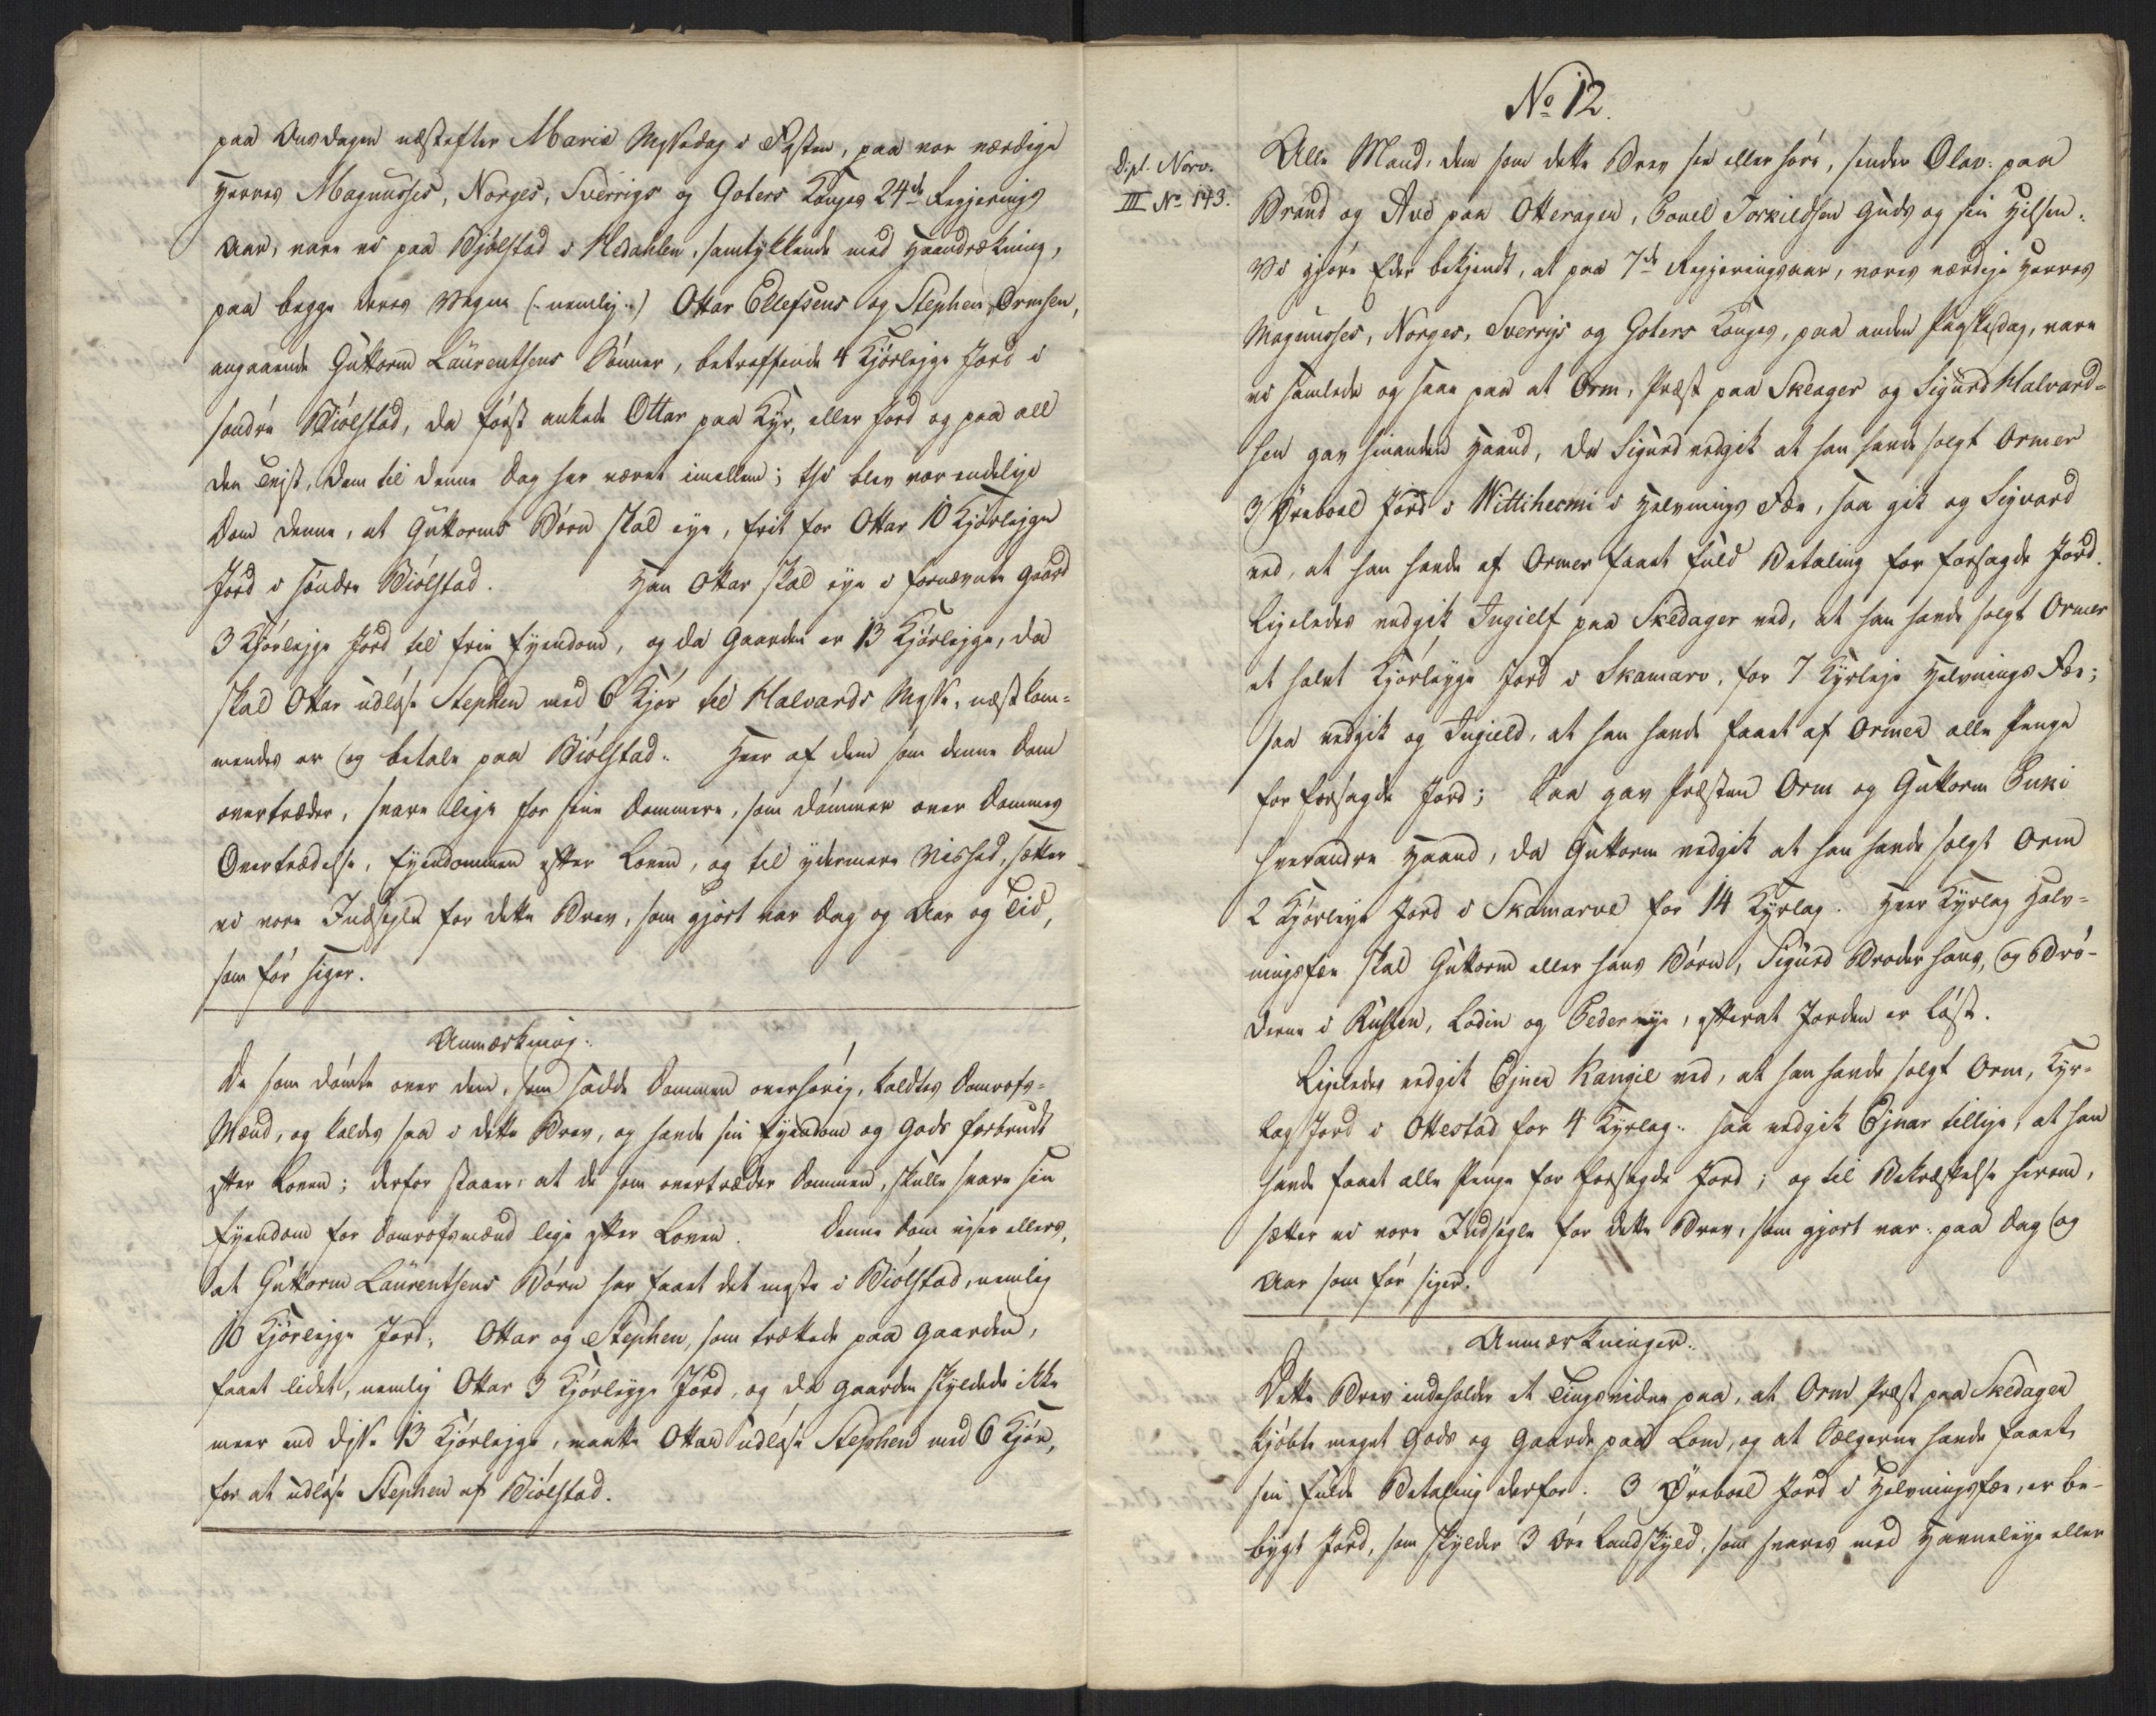 paa Onsdagen næstefter Maria Messedag i Fasten, paa vor værdige
Herres Magnusses, Norges, Sverrigs og Goters Konges 24de Regjerings
Aar, vare vi paa Bjølstad i Hedahlen, samtykkende med Haandrækning,
paa begge deres Vegne (: nemlig :) Ottar Ellefsens og Stephen Ormsen,
angaaende Guttorm Laurentsens Sønner, betreffende 4 Kjørlejge Jord i
søndre Biølstad, da først ankede Ottar paa Kyr, eller Jord og paa all
den Tvist, dem til denne Dag har været imellem; thi blev vor endelige
Dom denne, at Guttorms Børn skal eye, frit for Ottar 10 Kjørlejge
Jord i søndre Biølstad. Han Ottar skal eye i fornævnte Gaard
3 Kjørlejge Jord til frie Eyendom, og da Gaarden er 13 Kjørlejge, da
skal Ottar udløse Stephen med 6 Kjør til Halvards Messe, næstkom-
mendes er og betale paa Biølstad. Hver af dem som denne Dom
overtræder, svare lige for sine Dommere, som dømmer over Dommes
Overtrædelse, Eyendommen efter Loven, og til ydermere Vished, sætter
vi vore Indsegle for dette Brev, som gjort var Dag og Aar og Tid,
som før siger.
Anmærkning.
De som dømte over dem, som sadde Dommen overhørig, kaldtes Domrofs-
Mænd, og kaldes saa i dette Brev, og havde sin Eyendom og Gods forbrudt
efter Loven; derfor staaer, at de som overtræder Dommen, skulle svare sin
Eyendom for Domrofsmænd lige efter Loven. Denne Dom viser ellers,
at Guttorm Laurentsens Børn har faaet det meste i Biølstad, nemlig
10 Kjørlejge Jord, Ottar og Stephen, som trættede paa Gaarden,
faaet lidet, nemlig Ottar 3 Kjørleyge Jord, og da Gaarden skyldede ikke
meer end disse 13 Kjørlejge, maatte Ottar udløse Stephen med 6 Kjør,
for at udløse Stephen af Biølstad.
No 12.
Dipl. Norv.
III No 143.
Alle Mænd, dem som dette Brev see eller høre, sender Olav paa
Brand og Avd paa Otteragen, Povel Torkildsen Guds og sin Hilsen.
Vi gjøre Eder bekjendt, at paa 7de Regjeringsaar, vores værdige Herres
Magnusses, Norges, Sverrigs og Goters Konges, paa anden Paaskedag, vare
vi samlede og saae paa at Orm, Præst paa Skeager og Sigurd Halvard-
sen gav hinanden Haand, da Sigurd vedgik at han havde solgt Ormer
3 Øreboel Jord i Vittiheemi i Helvnings Fæe, saa gik og Sigvard
ved, at han havde af Ormer faaet fuld Betaling for forsagde Jord.
Ligeledes vedgik Ingielf paa Skedager ved, at han havde solgt Ormer
et halvt Kjørleyge Jord i Skamarv, for 7 Kyrleje Helvnings Fæe;
saa vedgik og Ingield, at han havde faaet af Ormer alle Penge
for forsagde Jord; Saa gav Præsten Orm og Guttorm Puki
hverandre Haand, da Guttorm vedgik at han havde solgt Orm
2 Kjørleye Jord i Skamarve for 14 Kyrlag. Hver Kyrlag Helv-
ningsfæe skal Guttorm eller hans Børn, Sigurd Broder hans, og Brø-
drene i Rusten, Lodin og Peder eye, efterat Jorden er løst.
Ligeledes vedgik Ejner Rangil ved, at han havde solgt Orm, Kyr-
lag Jord i Ottestad for 4 Kyrlag. saa vedgik Ejnar tillige, at han
havde faaet alle Penge for forsagde Jord; og til Bekræftelse herom,
sætter vi vore Indsegle for dette Brev, som gjort var paa Dag og
Aar som før siger.
Anmærkninger.
Dette Brev indeholder et Tingsvidne paa, at Orm Præst paa Skedager
kjøbte meget Gods og Gaarde paa Lom, og at Sælgerne havde faaet
sin fulde Betaling derfor. 3 Øreboel Jord i Helvningsfæe, er be-
bygt Jord, som skylder 3 Øre Landskyld, som svares med Havneleye eller